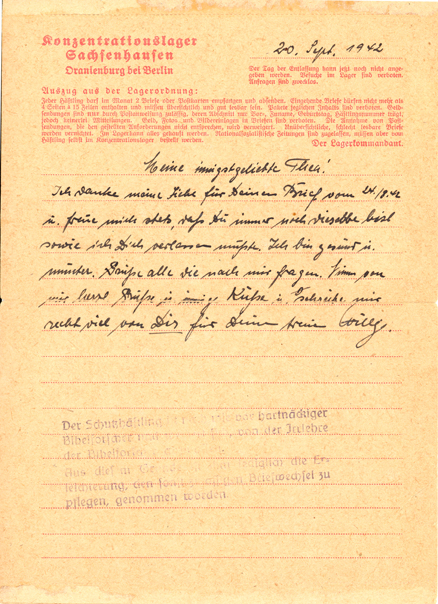 Konzentrationslager
Sachsenhausen
Oranienburg bei Berlin
20. Sept. 1942
Der Tag der Entlassung kann jetzt noch nicht ange-
geben werden. Besuche im Lager sind verboten.
Anfragen sind zwecklos.
Auszug aus der Lagerordnung:
Jeder Häftling darf im Monat 2 Briefe oder Postkarten empfangen und absenden. Eingehende Briefe dürfen nicht mehr als
4 Seiten à 15 Zeilen enthalten und müssen übersichtlich und gut lesbar sein. Pakete jeglichen Inhalts sind verboten. Geld-
sendungen sind nur durch Postanweisung zulässig, deren Abschnitt nur Vor-, Zuname, Geburtstag, Häftlingsnummer trägt,
jedoch keinerlei Mitteilungen. Geld, Fotos und Bildereinlagen in Briefen sind verboten. Die Annahme von Post-
sendungen, die den gestellten Anforderungen nicht entsprechen, wird verweigert. Unübersichtliche, schlecht lesbare Briefe
werden vernichtet. Im Lager kann alles gekauft werden. Nationalsozialistische Zeitungen sind zugelassen, müssen aber vom
Häftling selbst im Konzentrationslager bestellt werden.
Der Lagerkommandant.
Meine innigstgeliebte
Ich danke meine Liebe für Deinen Brief vom 24/8.42
u. freue mich stets, daß Du immer noch dieselbe bist
sowie ich Dich verlassen mußte. Ich bin gesund u.
munter. Grüße alle die nach mir fragen. Nimm von
mir herzl. Grüße u. innige Küsse u. Schreibe mir
recht viel von Dir für Dein treuer Willy.
Der Schutzhäftling ist nach wie vor hartnäckiger
Bibelforscher und von der Irrlehre
der Bibelforscher
Aus diesem Grunde ist ihm lediglich die Er-
leichterung, den Briefwechsel zu
pflegen, genommen worden.